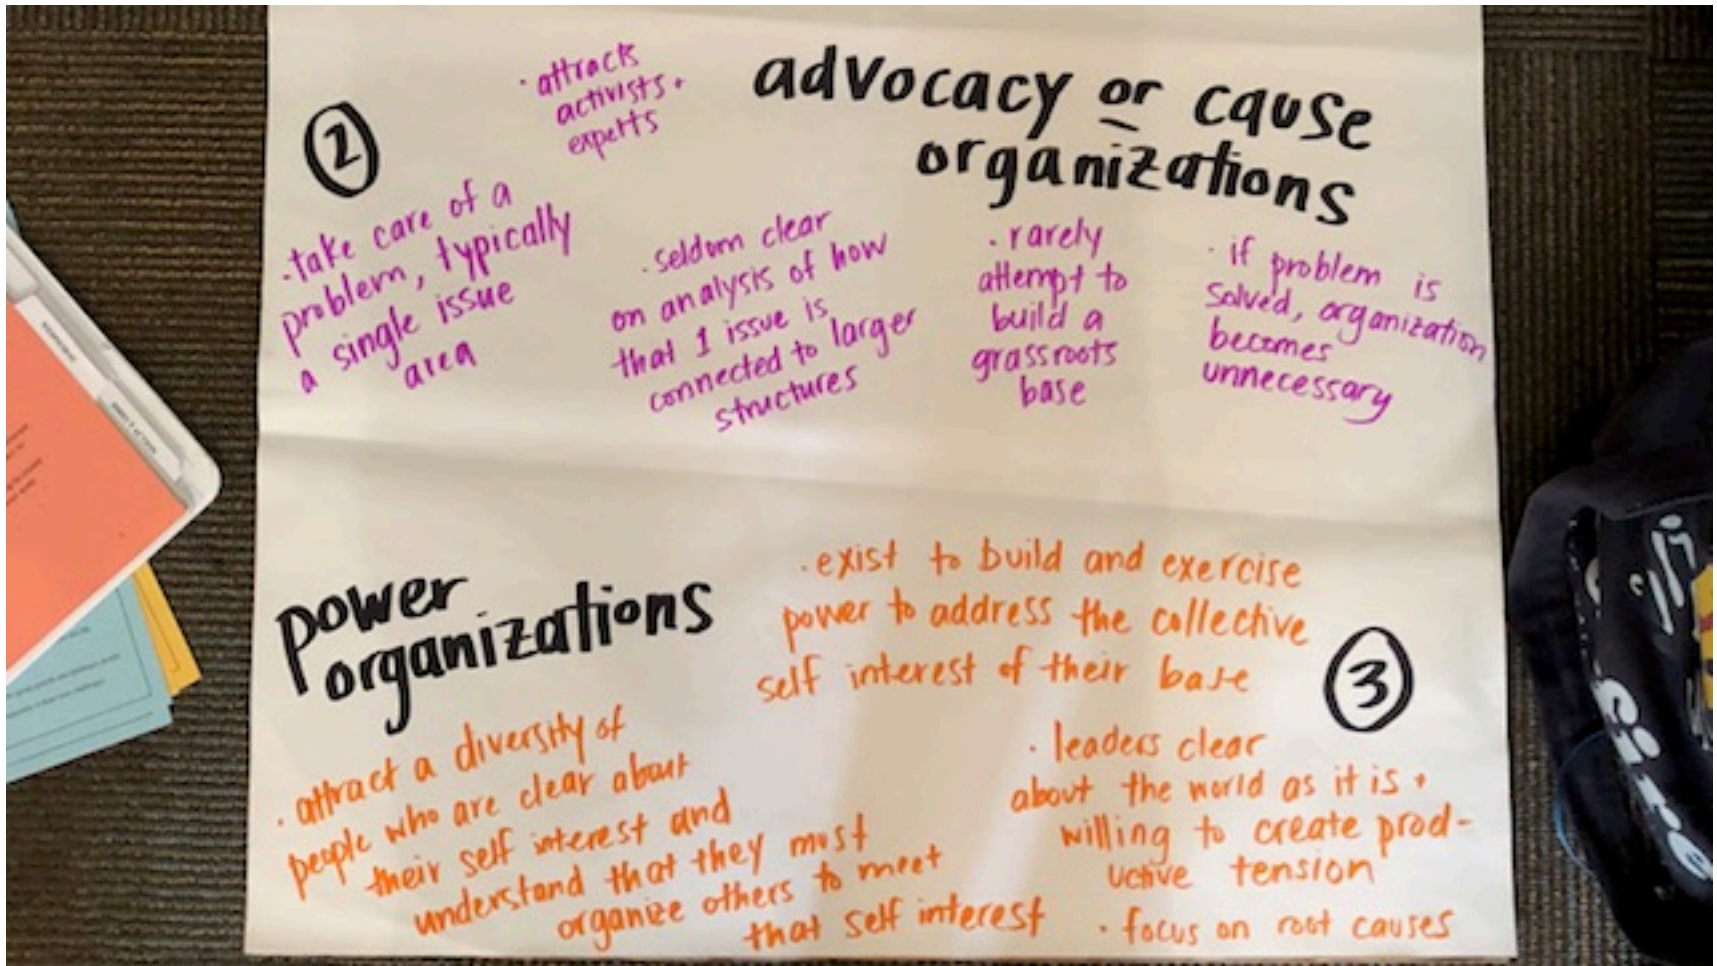 2
· attracts
activists +
experts
advocacy or cause
organizations
· take care of a
problem, typically
a single issue
area
· seldom clear
on analysis of how
that 1 issue is
connected to larger
structures
· rarely
attempt to
build a
grassroots
base
· if problem is
solved, organization
becomes
unnecessary
power
organizations
· exist to build and exercise
power to address the collective
self interest of their base
3
· attract a diversity of
people who are clear about
their self interest and
understand that they must
organize others to meet
that self interest
· leaders clear
about the world as it is +
willing to create prod-
uctive tension
· focus on root causes